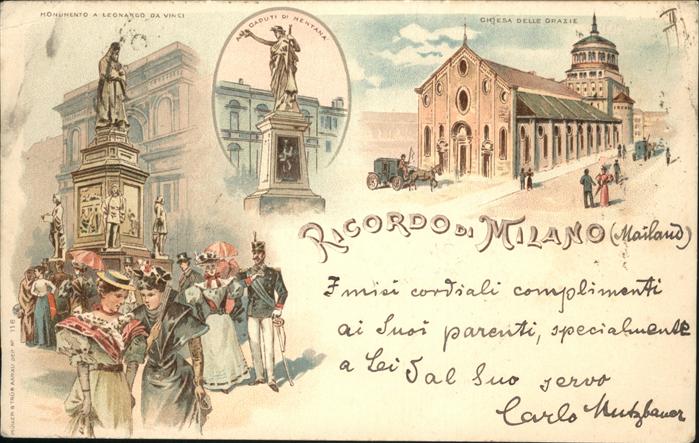 MONUMENTO A LEONARDO DA VINCI
AI CADUTI DI MENTANA
CHIESA DELLE GRAZIE
II
RICORDO DI MILANO (Mailand)
I miei cordiali complimenti
ai Suoi parenti, specialmente
a Lei
Dal Suo servo
Carlo Mutzbauer
MÜLLER & TRÜB AARAU DEP. Nº 116